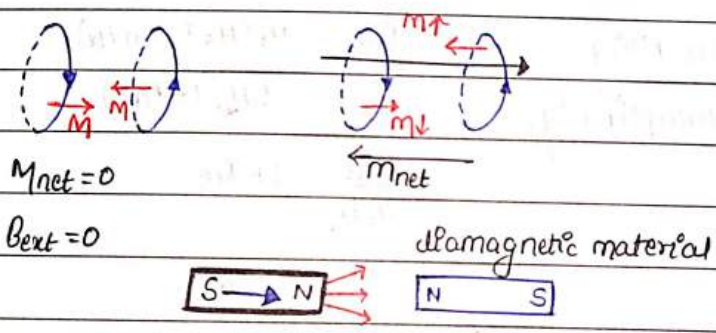 m↑
M M m↓
Mnet = 0 mnet
Bext = 0 diamagnetic material
S N N S